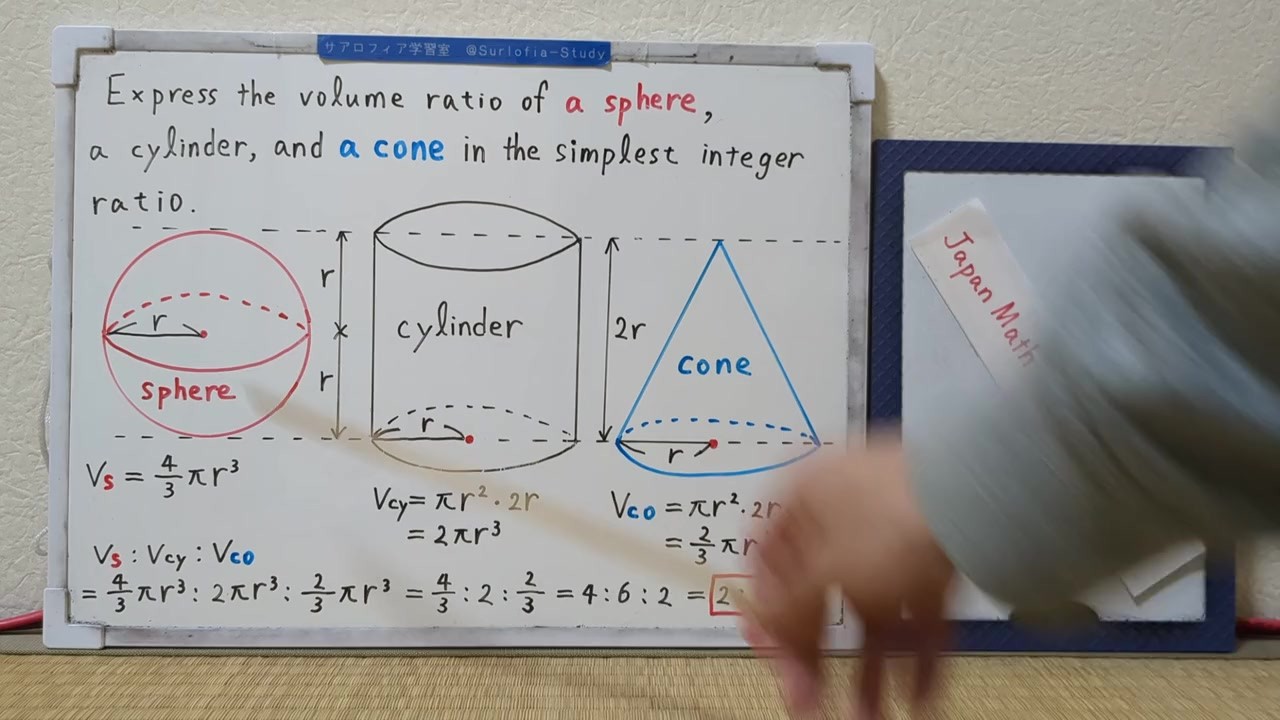 サアロフィア学習室 @Surlofia-Study
Express the volume ratio of a sphere,
a cylinder, and a cone in the simplest integer
ratio.
r
r
r
sphere
cylinder
r
2r
cone
r
Vs = 4/3 πr³
Vcy = πr² · 2r
= 2πr³
Vco = πr² · 2r
= 2/3 πr
Vs : Vcy : Vco
= 4/3 πr³ : 2πr³ : 2/3 πr³ = 4/3 : 2 : 2/3 = 4 : 6 : 2 = 2 :
Japan Math